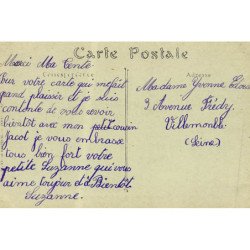 Carte Postale
CORRESPONDANCE
ADRESSE
Merci Ma Tante
Pour votre carte qui me fait
grand plaisir et je suis
contente de vous revoir
bientôt avec mon petit cousin
Jacot je vous embrasse
tous bien fort votre
petite Suzanne qui vous
aime toujour et à Bientôt
Suzanne.
Madame Yvonne
9 Avenue Frédy
Villemomble
(Seine)